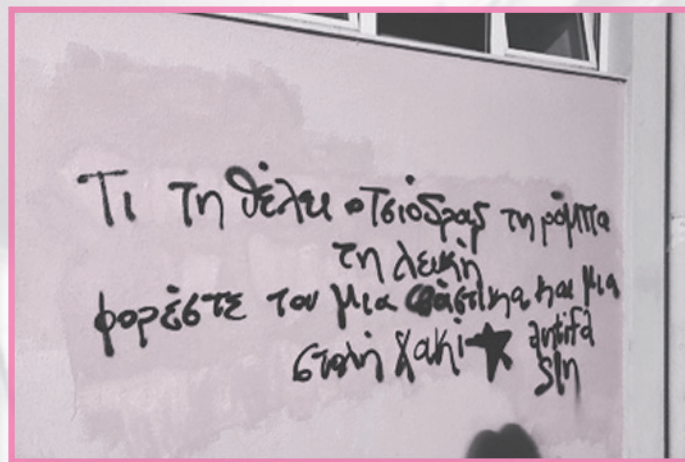 Τι τη θέλει ο Τσιόδρας τη ρόμπα
τη λευκή
φορέστε του μια σβάστικα και μια
στολή χακί ★ antifa